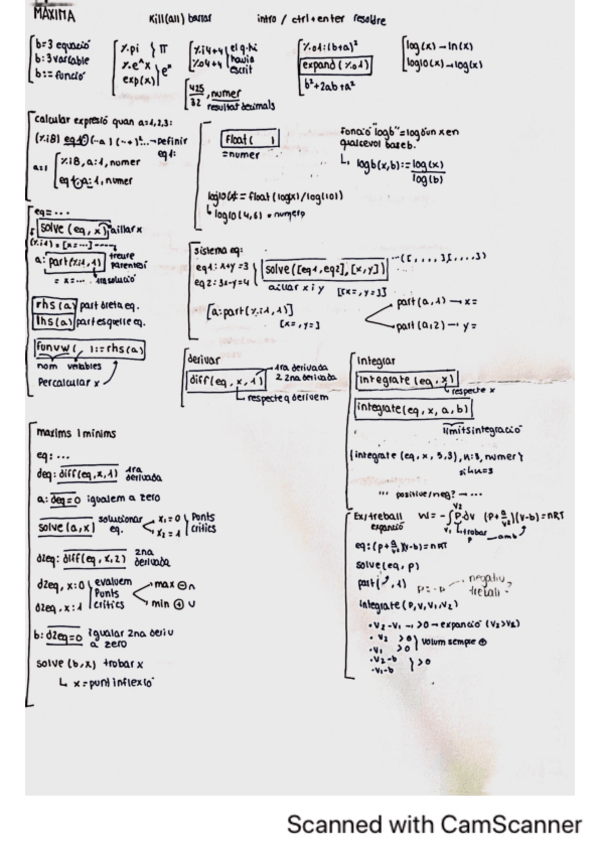 MÀXIMA
Kill(all) borrar
intro / ctrl+enter resoldre
b=3 equació
b:3 variable
b:= funció
%.pi } π
%.e^x
exp(x) } e^x
%i4+4
%o4+4
el q. hi havia escrit
425/32, numer
resultat decimals
%o1:(b+a)²
expand(%o1)
b²+2ab+a²
log(x) → ln(x)
log10(x) → log(x)
calcular expressió quan a=1,2,3:
→ definir eq1:
a=1
%i8, a:1, numer
eq1, a:1, numer
float( )
=numer
log10(4 = float(log(x)/log(10))
↳ log10(4,6) = numero
Funció "logb" = log d'un x en qualsevol base b.
↳ logb(x,b):= log(x)/log(b)
eq=...
solve(eq, x) aïllar x
(%i1) = [x=...]
a: part(%i1,1) treure parèntesi
= x=... 1ra solució
rhs(a) part dreta eq.
lhs(a) part esquerre eq.
funvw( ):=rhs(a)
nom variables
Per calcular x
sistema eq:
eq1: x+y=3
eq2: 3x-y=4
solve([eq1,eq2],[x,y])
aïllar x i y
[[x=,y=]]
a:part(%i1,1)
[x=,y=]
part(a,1) → x=
part(a,2) → y=
derivar
diff(eq,x,1)
1ra derivada
2 2na derivada
respecte q derivem
Integrar
integrate(eq,x)
respecte x
integrate(eq,x,a,b)
límits integració
(integrate(eq,x,5,3),n:3,numer)
si n=3
... positive/neg? → ...
maxims i minims
eq: ...
deq: diff(eq,x,1) 1ra derivada
a: deq=0 igualem a zero
solve(a,x) solucionar eq.
x₁=0
x₂=1
Punts crítics
d2eq: diff(eq,x,2) 2na derivada
d2eq, x:0
d2eq, x:1
evaluem Punts crítics
max ⊖ ∩
min ⊕ ∪
b: d2eq=0 igualar 2na deriv a zero
solve(b,x) trobar x
↳ x = punt inflexió
Ex/treball expansió
W=-∫Pdv
(v-b)=nRT
trobar P
amb
solve(eq,p)
part( ,1)
negatiu
treball
integrate(P,v,V₁,V₂)
• V₂-V₁ → >0 → expansió (V₂>V₁)
• V₂ >0
• V₁ >0
volum sempre ⊕
• V₂-b
• V₁-b
>0
Scanned with CamScanner